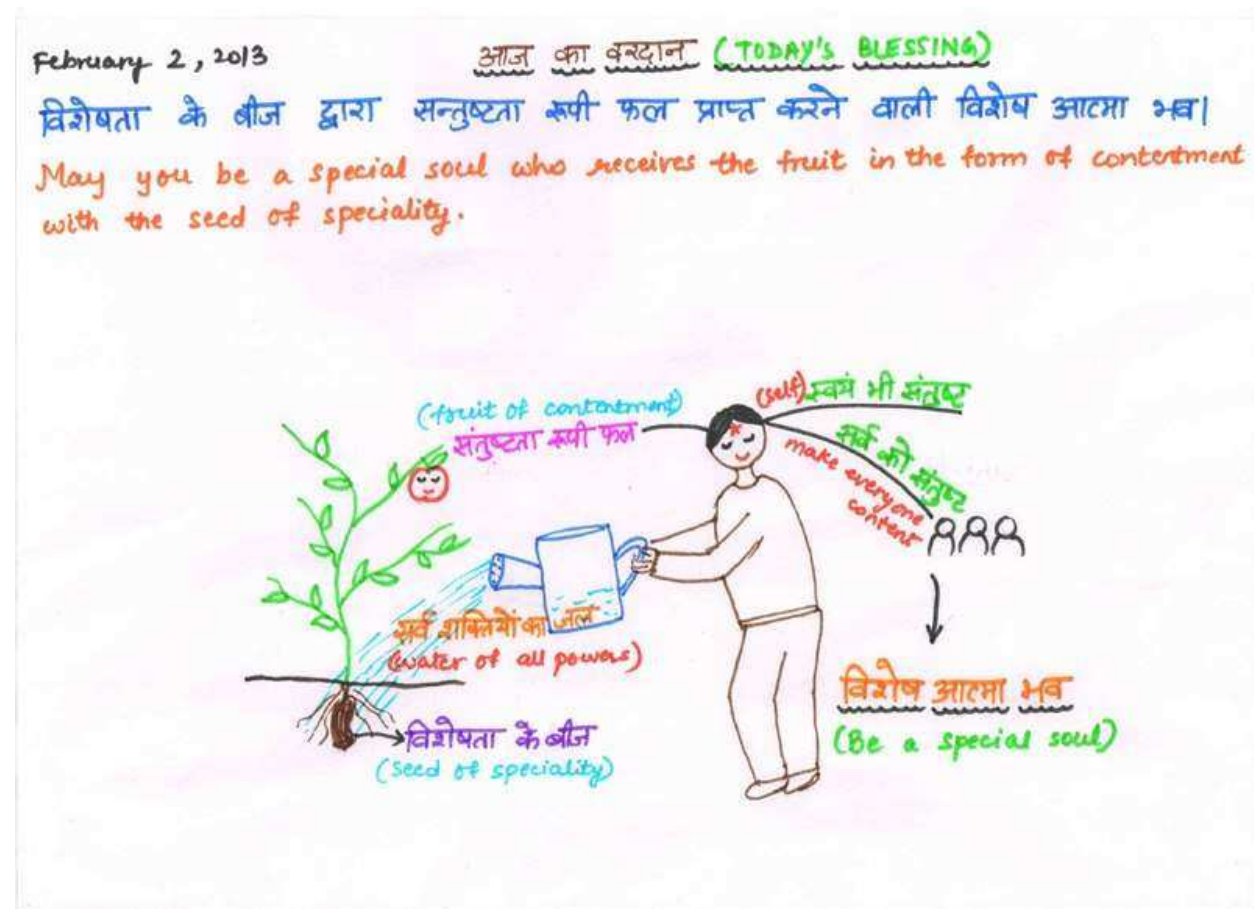 February 2, 2013
आज का वरदान (TODAY'S BLESSING)
विशेषता के बीज द्वारा सन्तुष्टता रूपी फल प्राप्त करने वाली विशेष आत्मा भव।
May you be a special soul who receives the fruit in the form of contentment
with the seed of speciality.
(fruit of contentment)
संतुष्टता रूपी फल
(self) स्वयं भी संतुष्ट
सर्व को संतुष्ट
make everyone
content
सर्व शक्तियों का जल
(water of all powers)
विशेषता के बीज
(seed of speciality)
विशेष आत्मा भव
(Be a special soul)